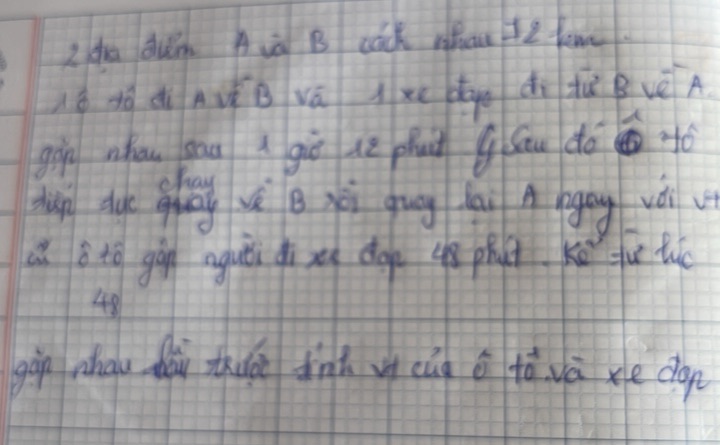 2 địa điểm A và B cách nhau 72 km.
1 ô tô đi A về B và 1 xe đạp đi từ B về A
gặp nhau sau 1 giờ 12 phút Sau đó ô tô
tiếp tục chạy về B rồi quay lại A ngay với vt
cũ ô tô gặp người đi xe đạp 48 phút. Kể từ lúc
48
gặp nhau trước tính vt của ô tô và xe đạp